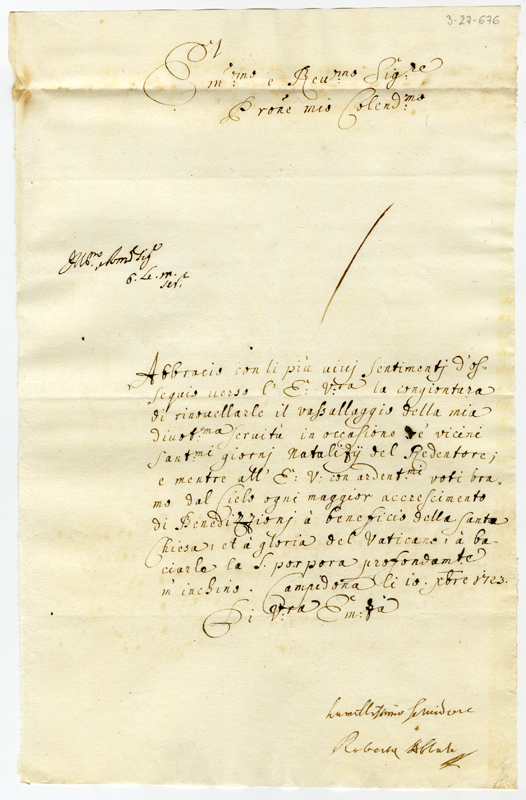 3-27-676
Em:mo e Reu:mo Sig:re
Prone mio Colend:mo
Abbracio con li più viuj sentimentj d'os-
sequio uerso l' E: V:ra la congiontura
di rinouellarle il vassallaggio della mia
diuot:ma seruitù in occasione de' vicini
Sant:mi giornj Natalizij del Redentore;
e mentre all' E: V: con ardent:mi voti bra-
mo dal Cielo ogni maggior accrescimento
di Benedizzionj à beneficio della Santa
Chiesa, et à gloria del Vaticano; à ba-
ciarle la S. porpora profondam:te
m' inchino. Campidona li 10. xbre 1723.
Di V:ra Em:za
humilissimo seruidore